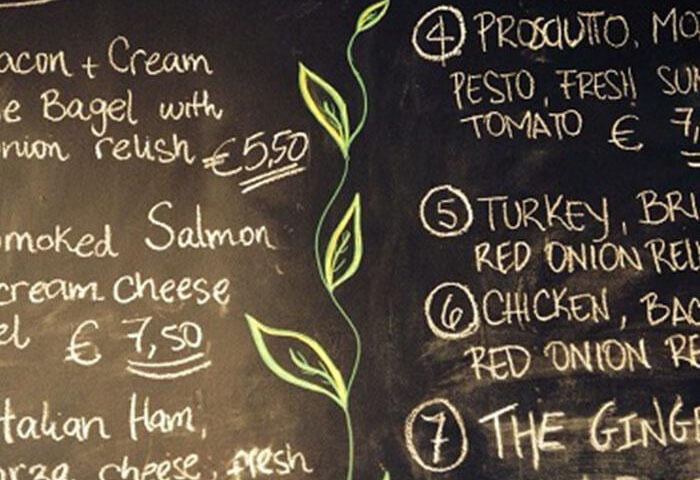 acon + Cream
e Bagel with
nion relish €5,50
moked Salmon
cream cheese
el € 7,50
talian Ham,
orza cheese, fresh
④ PROSCIUTTO, MO
PESTO, FRESH SUN
TOMATO € 7,
⑤ TURKEY, BRI
RED ONION REL
⑥ CHICKEN, BAC
RED ONION RE
⑦ THE GINGE